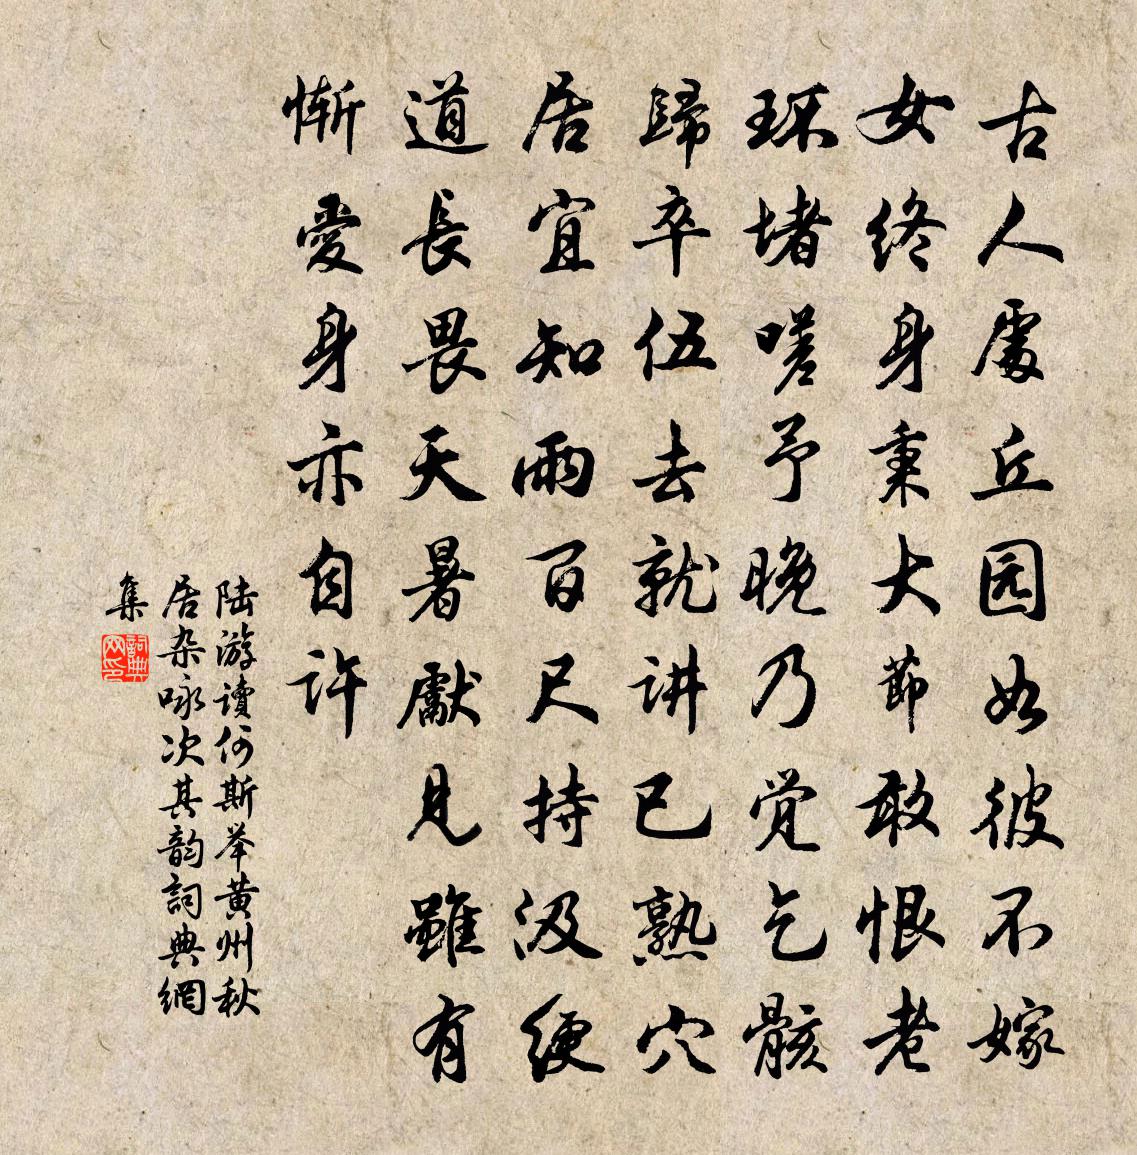 古人處丘园如彼不嫁
女终身秉大節敢恨老
环堵嗟予晚乃觉乞骸
歸卒伍去就讲已熟穴
居宜知雨百尺持汲绠
道長畏天暑獻見雖有
慚愛身亦自许
陆游讀何斯举黄州秋
居杂咏次其韵詞典網
集
詞典网印